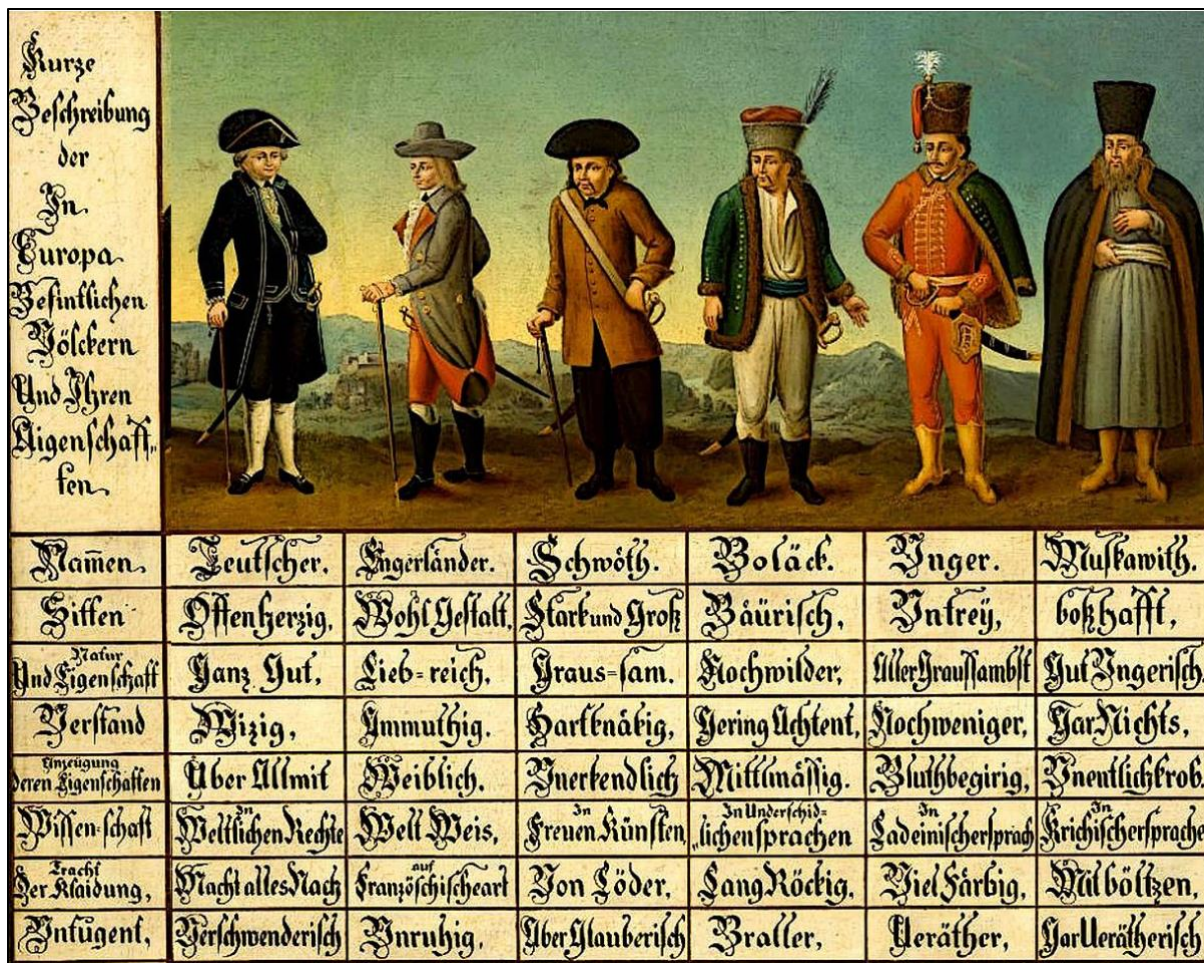 Kurze
Beschreibung
der
In
Europa
Befintlichen
Völckern
Und Ihren
Aigenschaff„
ten
Nam̄en. Teutscher. Engerländer. Schwöth. Boläck. Vnger. Muskawith.
Sitten Offenherzig, Wohl Gestalt, Stark und Groß Bäürisch, Vntreÿ, boßhafft,
Natur
Und Eigenschaft Ganz Gut, Lieb=reich. Graus=sam. Nochwilder, Aller Graussambst Gut Vngerisch,
Verstand Wizig, Ammuthig. Hartknäkig, Gering Achtent, Nochweniger, Gar Nichts,
Anzeügung
deren Eigenschaften Über Allmit Weiblich. Vnerkendlich Mittlmässig. Bluthbegirig, Vnentlichkrob.
Wissen=schaft In Weltlichen Rechte Welt Weis, In Freuen Künsten, In Underschid=
„lichensprachen In Ladeinischersprach In Krichischersprache
Tracht
Der Klaidung, Macht alles Nach auf Französchischeart Von Löder, Lang Röckig, Viel Färbig, Mit böltzen.
Vntugent, Verschwenderisch Vnruhig, Aber Glauberisch Braller, Veräther, Gar Verätherisch